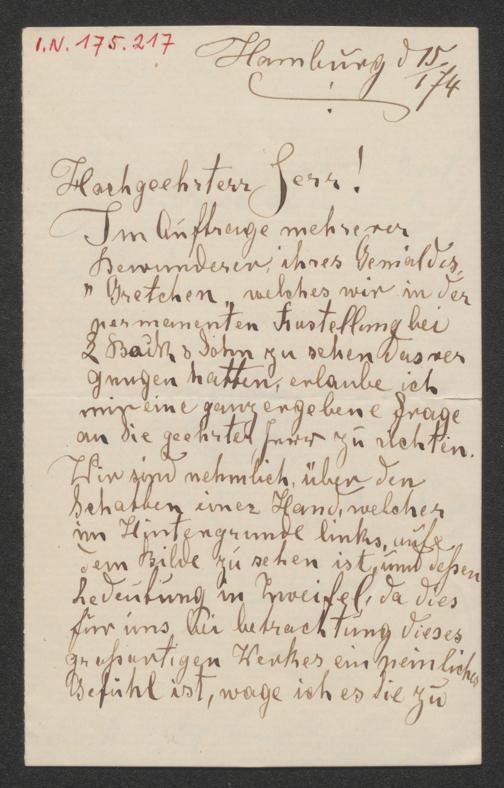 I.N. 175.217
Hamburg d 15/1 74
Hochgeehrterr Herr!
Im Auftrage mehrerer
Bewunderer, ihres Gemäldes,
"Gretchen" welches wir in der
permanenten Austellung bei
L Bock & Sohn zu sehen das ver
gnugen hatten, erlaube ich
mir eine ganz ergebene Frage
an die geehrter Herr zu richten.
Wir sind nehmlich, über den
Schatten einer Hand, welcher
im Hintergrunde links, aufe
dem Bilde zu sehen ist, und deßen
bedeutung in Zweifel, da dies
für uns bei betrachtung dieses
großartigen Werkes ein peinliches
Gefühl ist, wage ich es die zu